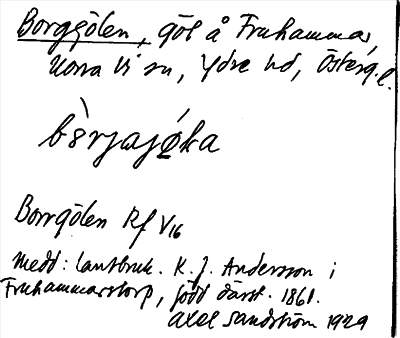 Borggölen, göl å Fruhammar,
Norra Vi sn, Ydre hd, Österg. l.
bòrjajø̀ka
Borrgölen Rf V16
Medd: lantbruk. K. J. Andersson i
Fruhammarstorp, född därst. 1861.
Axel Sandström 1929